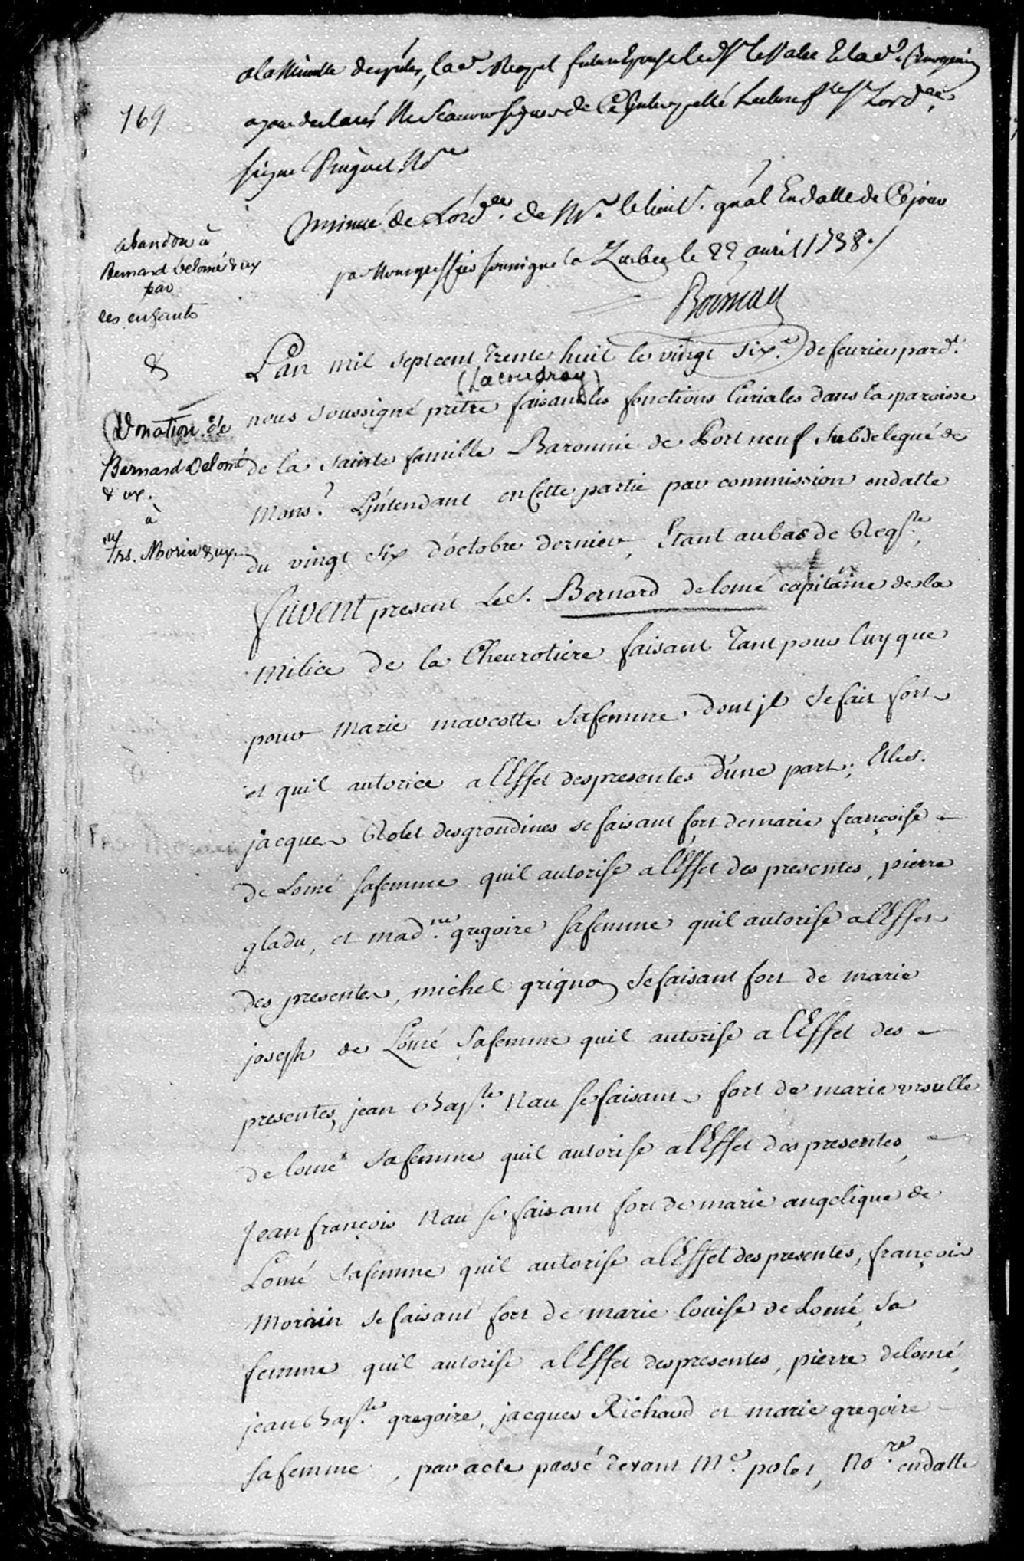 169
signé Pinguet No.re
insinué de l'ord.ce de Mr. le lieut. gnâl Endatte de Ce jour
soussigné a Quebec le 22 avril 1738./.
Boisseau
abandon à
Bernard Delomé & ux
par
les enfants
&
Donation de
Bernard Delomé
& ux.
à
frs. Morin & ux.
L'an mil sept cent Trente huit le vingt six.e de feurier pard.t
(Lacoudray)
nous soussigné prêtre faisant les fonctions Curiales dans la paroisse
de la sainte famille Baronnie de Port neuf Subdelegué de
Monsr. L'jntendant en Cette partie par commission endatte
du vingt Six d'octobre dernier, Etant au bas de Reqste,
fuvent present Le S. Bernard delomé capitaine de la
milice de la Cheurotiere faisant Tant pour luy que
pour marie marcotte Safemme dont jl Se fait fort
et quil autorice a l'Effet des presentes d'une part; Et les.
jacques Rolet desgrondines se faisant fort de marie françoise
de Lomé safemme quil autorise a l'Effet des presentes, pierre
gladu, et mad.ne gregoire safemme quil autorise a l'Effet
des presentes, michel grignon Se faisant fort de marie
joseph de Lomé Safemme quil autorise a l'Effet des
presentes, jean bap.te Nau se faisant fort de marie ursulle
de lomé Safemme quil autorise a l'Effet des presentes,
Jean françois Nau se faisant fort de marie angelique de
Lomé Safemme quil autorise a l'Effet des presentes, françois
Morin Se faisant fort de marie louise de Lomé, Sa
femme quil autorise a l'Effet des presentes, pierre delomé,
jean bap.te gregoire, jacques Richard et marie gregoire
safemme, par acte passé devant M.e polet, No.re endatte